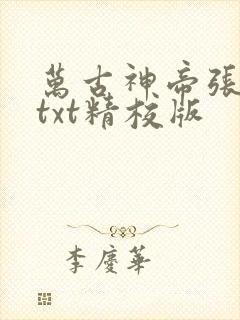 萬古神帝張
txt精校版
李慶華